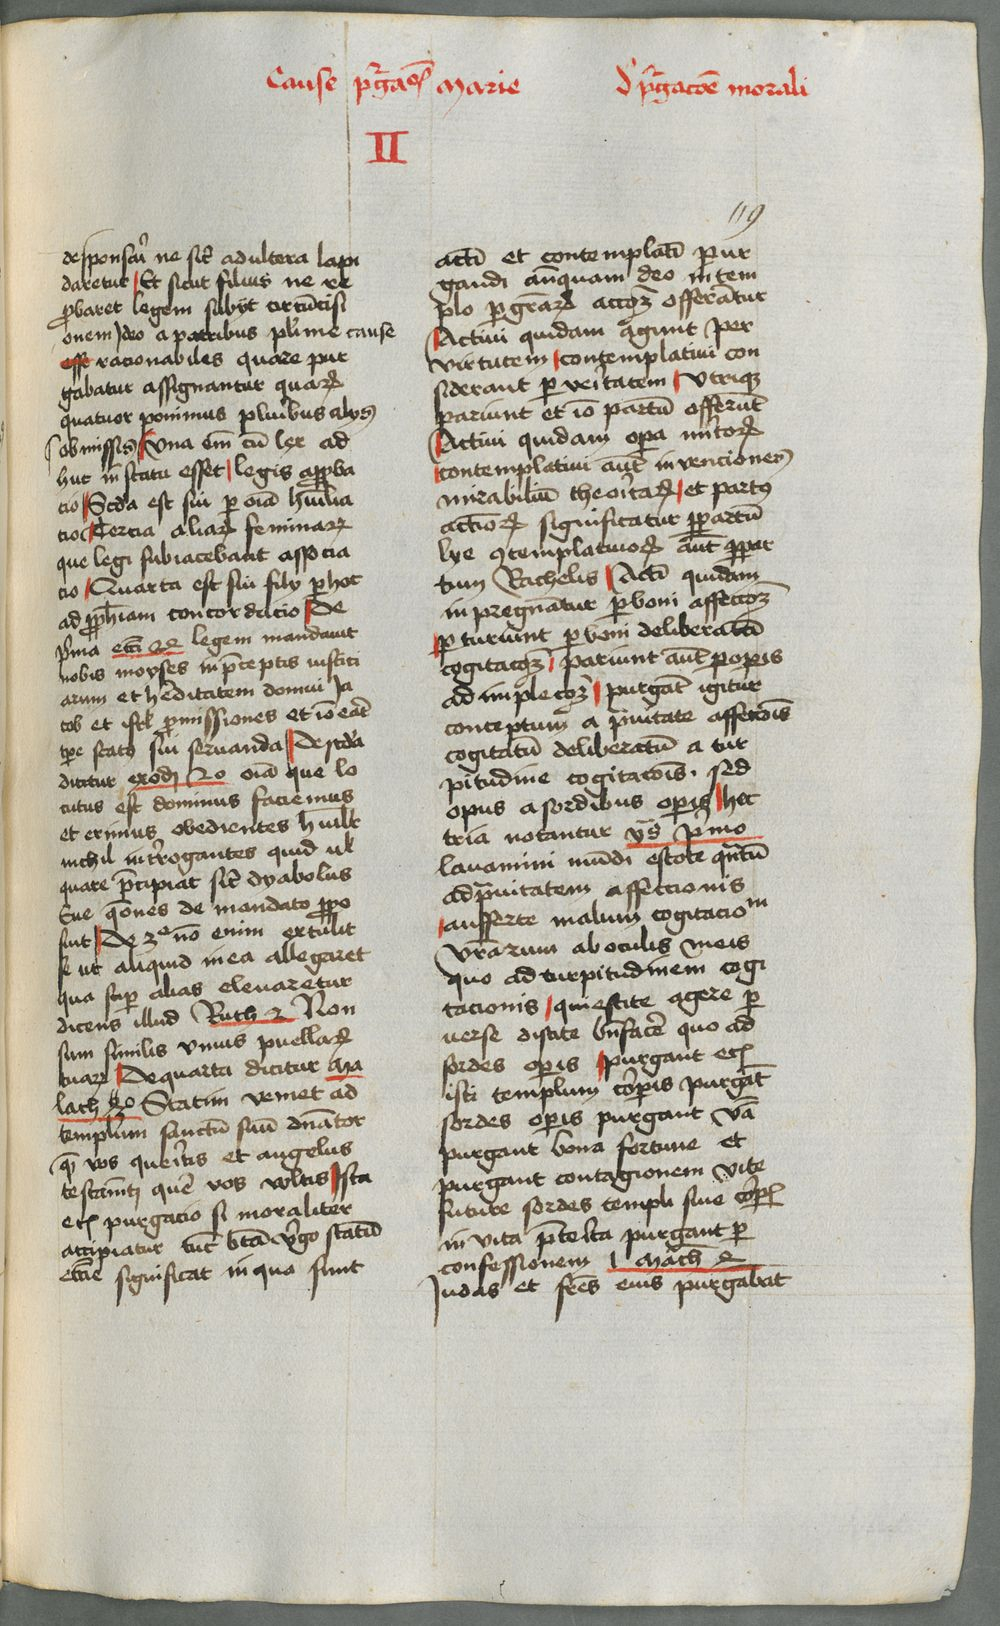 Cause pͬgacōīs Marie
De pͬgacōe morali
II
119
desponsari ne sic̄ adultera lapi
daretur Et sicut filius ne re
ꝓbaret legem subijt circūcisi
onem Ideo a patribus plͥme cause
racionabiles quare pur
gabatur assignantur quaꝝ
quatuor ponimus pluribus alijs
obmissis Una em̄ cū lex ad
huc in statu esset legis apꝓba
cio Scd̄a est sui ꝑ oīa humilia
cio Tercia aliaꝝ feminaꝝ
que legi subiacebant associa
cio Quarta est sui filij ꝑ hoc
ad ꝓphīam concordacio De
pͥma legem mandauit
nobis moyses in p̄ceptis iustici
arum et hereditatem domui Ja
cob et isrl̄ ꝓmissiones et iō eāt
tꝑe status sui seruanda De scd̄a
dicitur exodi oīa que lo
cutus est dominus faciemus
et erimus obedientes humilr̄
nichil introgantes quid ul̄
quare p̄cipiat sic̄ dyabolus
Eue q̄ones de mandato ꝓpo
suit De 3ᵃ nō enim extulit
se ut aliquid in ea allegaret
qua suꝑ alias eleuaretur
dicens illud Ruth 2 Non
sum similis unius puellaꝝ
tuaꝝ De quarta dicitur Ma
lach 3o Statim veniet ad
templum sanctū suū dn̄ator
quē vos queritis et angelus
testam̄ti quē vos vultis Ista
ecī purgacio si moraliter
accipiatur tūc btā v̓go statū
eccīe significat in quo sunt
acti et contemplati pur
gandi anquam deo in tem
plo ꝑ grāꝝ accōꝫ offerantur
Activi quidam agunt per
virtutem contemplativi con
siderant ꝑ veritatem Utriqꝫ
pariunt et iō partū offerūt
Activi quidam opa
contemplativi aūt invenciones
mirabiliū theoricaꝝ et partus
actioꝝ significatur ꝑ partū
lye ꝯtemplativoꝝ aūt ꝑ par
tum Rachelis Acti quidam
inpregnātur ꝑ boni affeccōꝫ
ꝑturiunt ꝑ boni deliberatā
cogitacōꝫ pariunt aūt ꝑ opis
ad implecōꝫ purgāt igitur
conceptum a prauitate affeccōis
cogitatū deliberatū a tur
pitudine cogitacōis. Sed
opus a sordibus opis hec
tria notantur ys̄ pͥmo
lauamini mūdi estote quantū
ad prauitatem affeccionis
aufferte malum cogitacionū
vrārum ab oculis meis
quo ad turpitudinem cogi
tacionis quiescite agere ꝑ
uerse discite bn̄facē quo ad
sordes opis purgant ecī
isti templum corpis purgāt
sordes opis purgant
purgant bona fortune et
purgant contagionem vite
future sordes templi siue corpis
in vita p̄terita purgant ꝑ
confessionem 1 Mach
Judas et frēs eius purgabāt